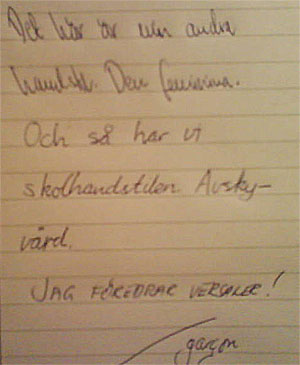 Det här är min andra
handstil. Den feminina.
Och så har vi
skolhandstilen. Avsky-
värd.
JAG FÖREDRAR VERSALER!
/garçon